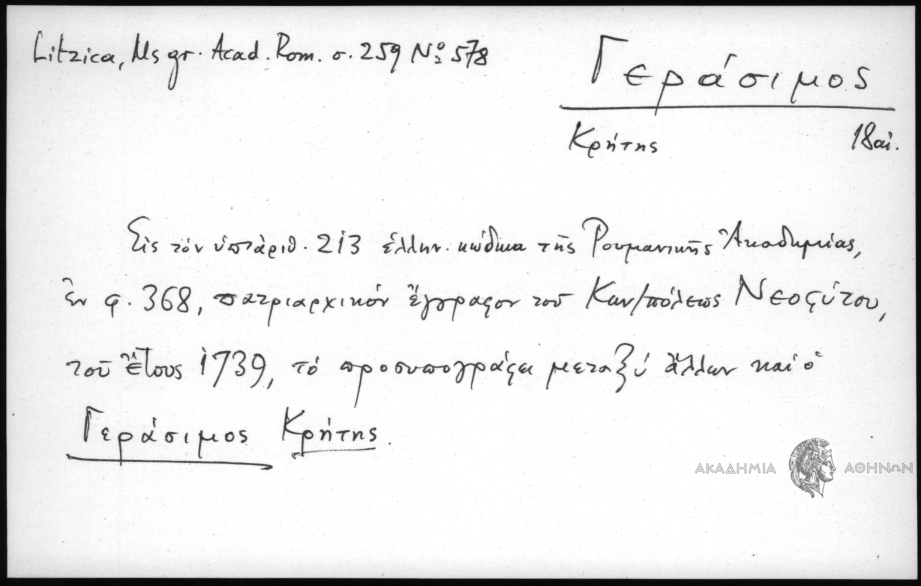 Litzica, Ms gr. Acad. Rom. σ. 259 Nº 578
Γεράσιμος
Κρήτης 18 αἰ.
Εἰς τὸν ὑπ' ἀριθ. 213 ἑλλην. κώδικα τῆς Ρουμανικῆς Ἀκαδημίας,
ἐν φ. 368, πατριαρχικὸν ἔγγραφον τοῦ Κων/πόλεως Νεοφύτου,
τοῦ ἔτους 1739, τὸ προσυπογράφει μεταξὺ ἄλλων καὶ ὁ
Γεράσιμος Κρήτης.
ΑΚΑΔΗΜΙΑ ΑΘΗΝΩΝ